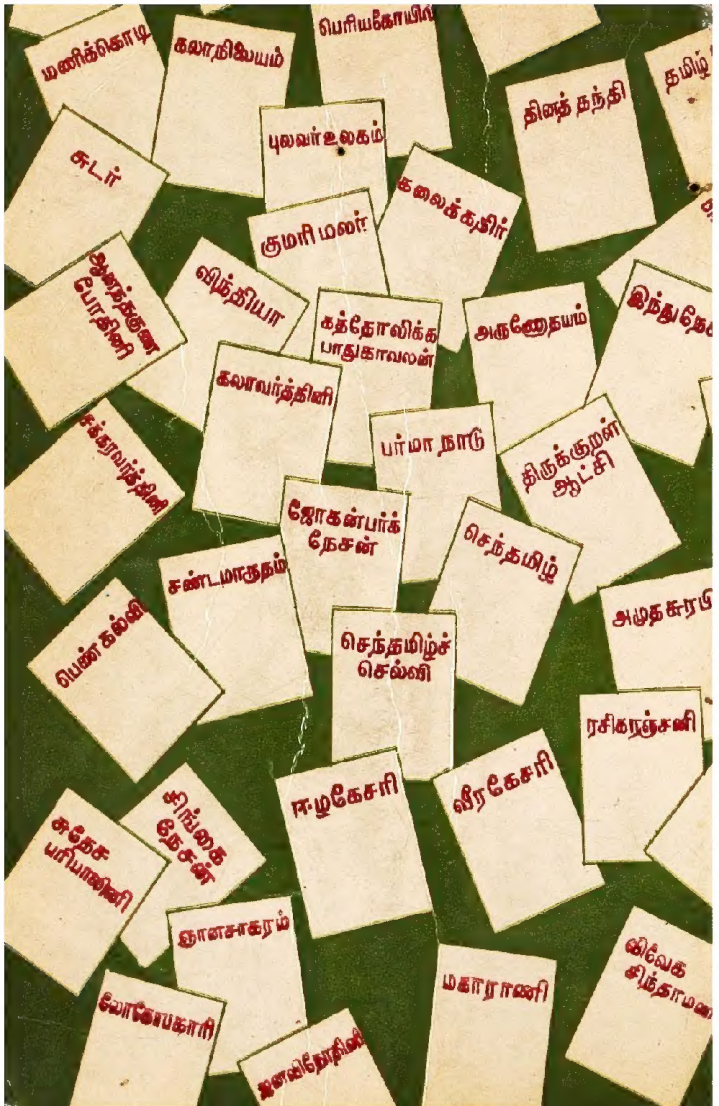 பெரியகோயில்
மணிக்கொடி
கலாநிலையம்
தினத் தந்தி
தமிழ்
புலவர் உலகம்
சுடர்
கலைக்கதிர்
குமரி மலர்
ஆனந்தகுண
போதினி
விந்தியா
கத்தோலிக்க
பாதுகாவலன்
அருணோதயம்
இந்துநேச
கலாவர்த்தினி
சக்கரவர்த்தினி
பர்மா நாடு
திருக்குறள்
ஆட்சி
ஜோகன்பர்க்
நேசன்
செந்தமிழ்
சண்டமாருதம்
பெண்கல்வி
செந்தமிழ்ச்
செல்வி
அமுதசுரபி
ரசிகரஞ்சனி
ஈழகேசரி
வீரகேசரி
சிங்கை
நேசன்
சுதேச
பரிபாலினி
ஞானசாகரம்
மகாராணி
விவேக
சிந்தாமணி
லோகோபகாரி
ஜனவிநோதினி